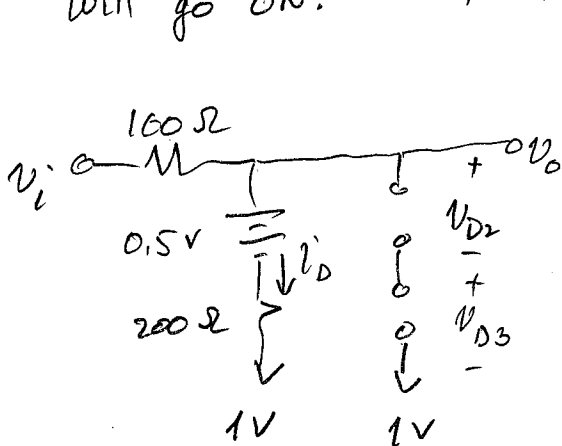 will go ON.
100 Ω
vi
vo
+
0.5 V
iD
VD2
-
+
200 Ω
VD3
-
1V
1V